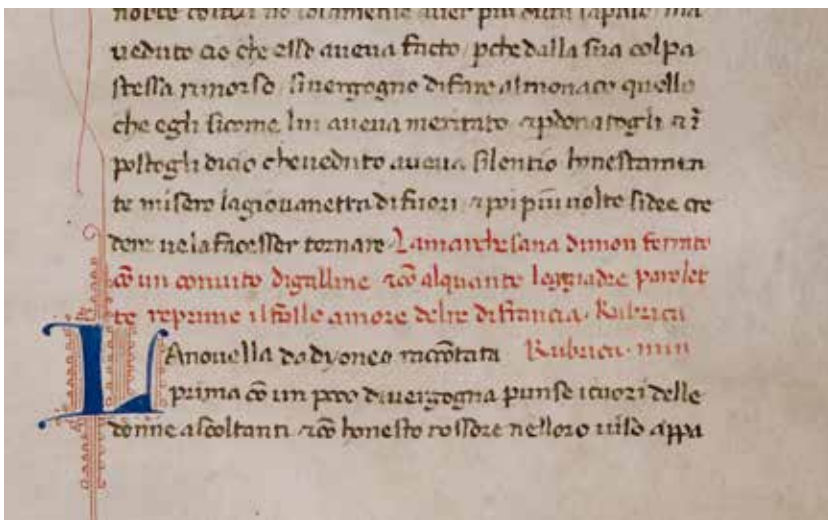 ueduto cio che esso aueua facto / pche dalla sua colpa
stessa rimorso / si uergogno di fare al monaco quello
che egli sicome lui aueua meritato / ⁊ pdonatogli ⁊ ī
postogli dicio che ueduto aueua silentio honestamen
te misero la giouanetta di fuori / ⁊ poi piu uolte si dee cre
dere ue la facesser tornare / La marchesana di mon ferrato
cō un conuito di galline ⁊ cō alquante leggiadre parolet
te reprime il folle amore del re di francia . Rubrica
LA nouella da dyoneo raccōtata Rubrica .
prima cō un poco di uergogna punse i cuori delle
donne ascoltanti ⁊ cō honesto rossore nel loro uiso appa